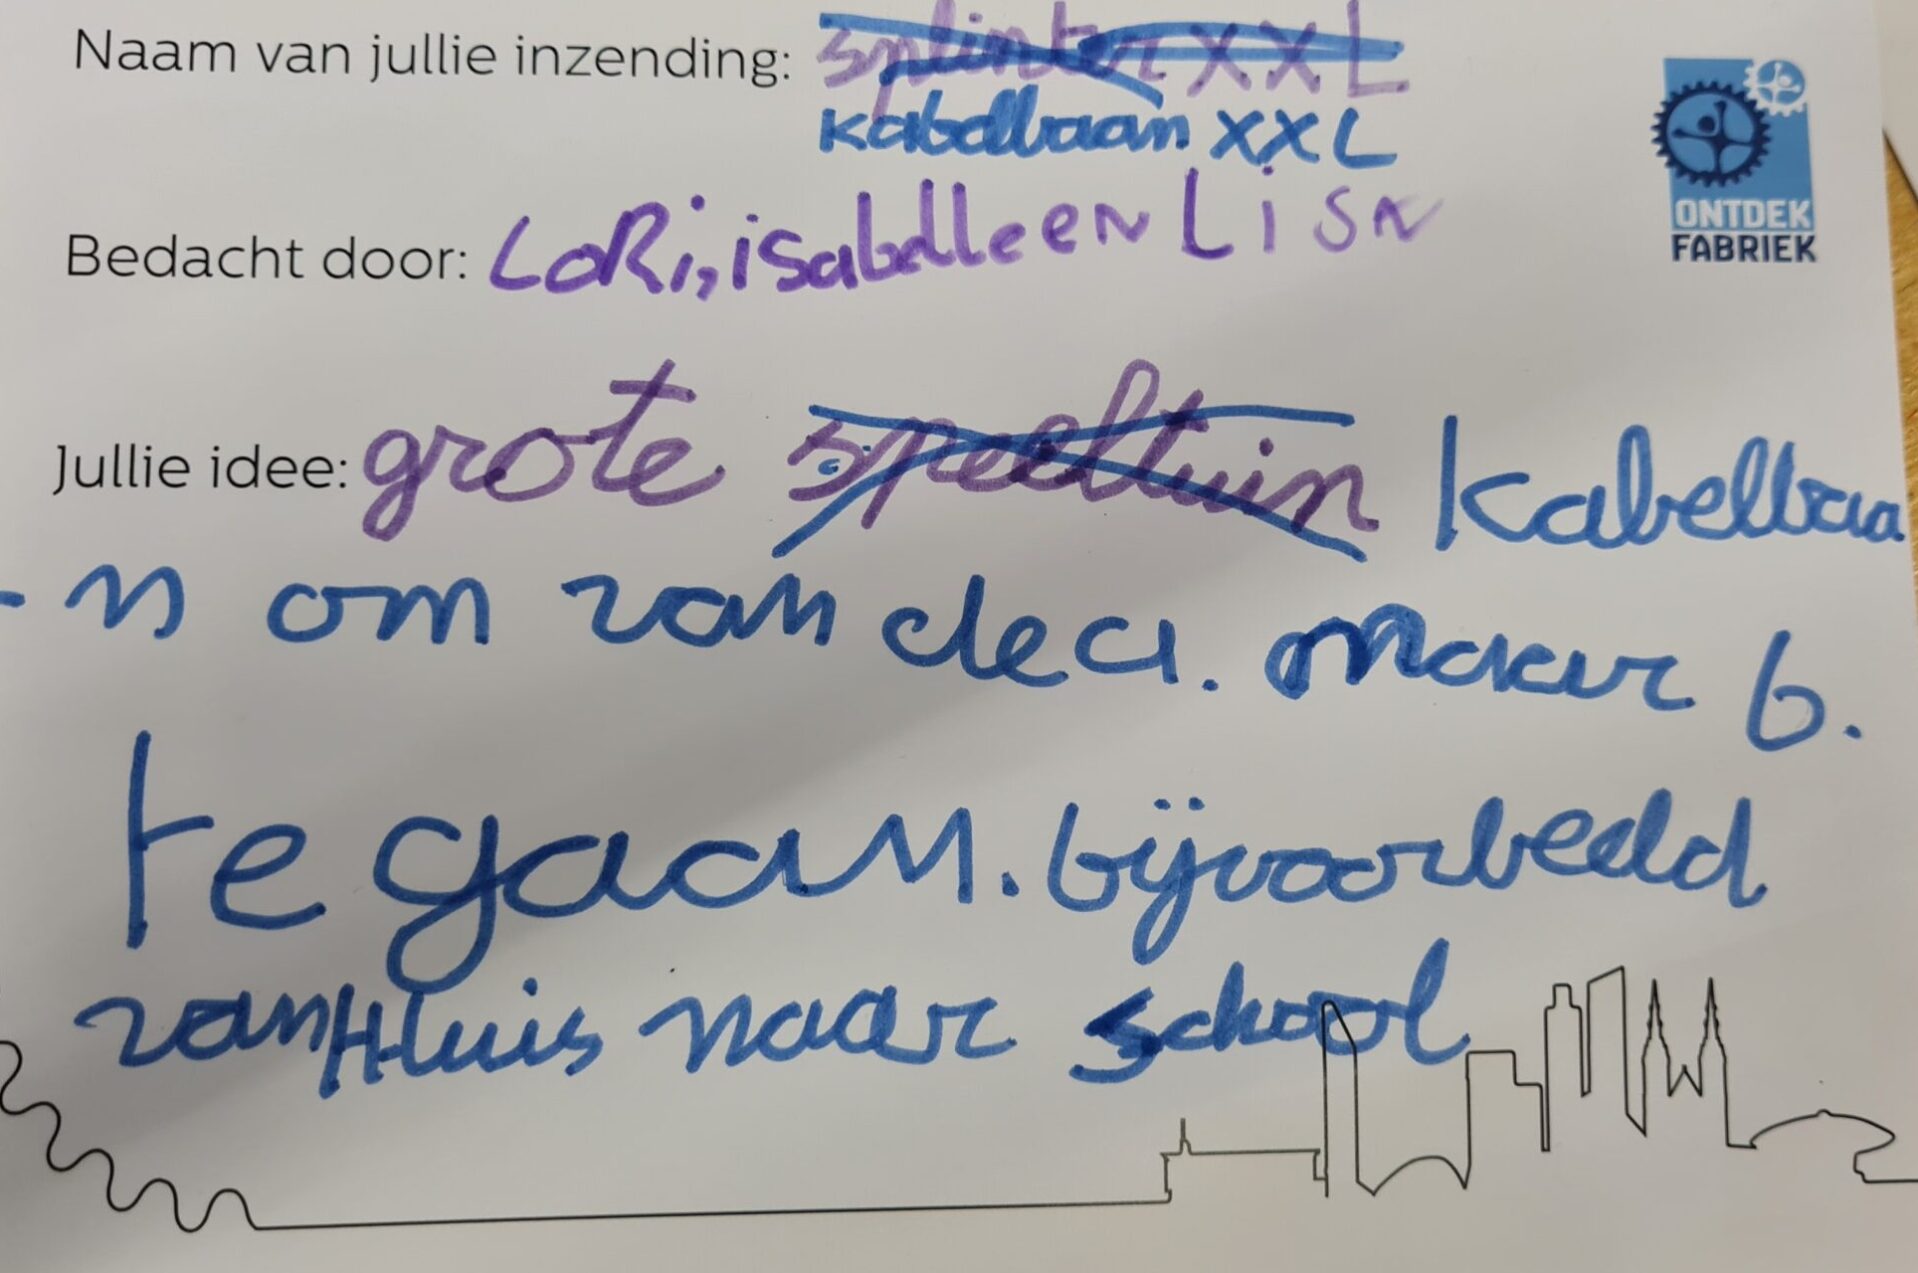 Naam van jullie inzending: splinter XXL
kabelbaan XXL
ONTDEK
FABRIEK
Bedacht door: LoRi, isabelle en Lisa
Jullie idee: grote speeltuin kabelbaa
-n om van de a. naar b.
te gaan. bijvoorbeeld
van Huis naar school